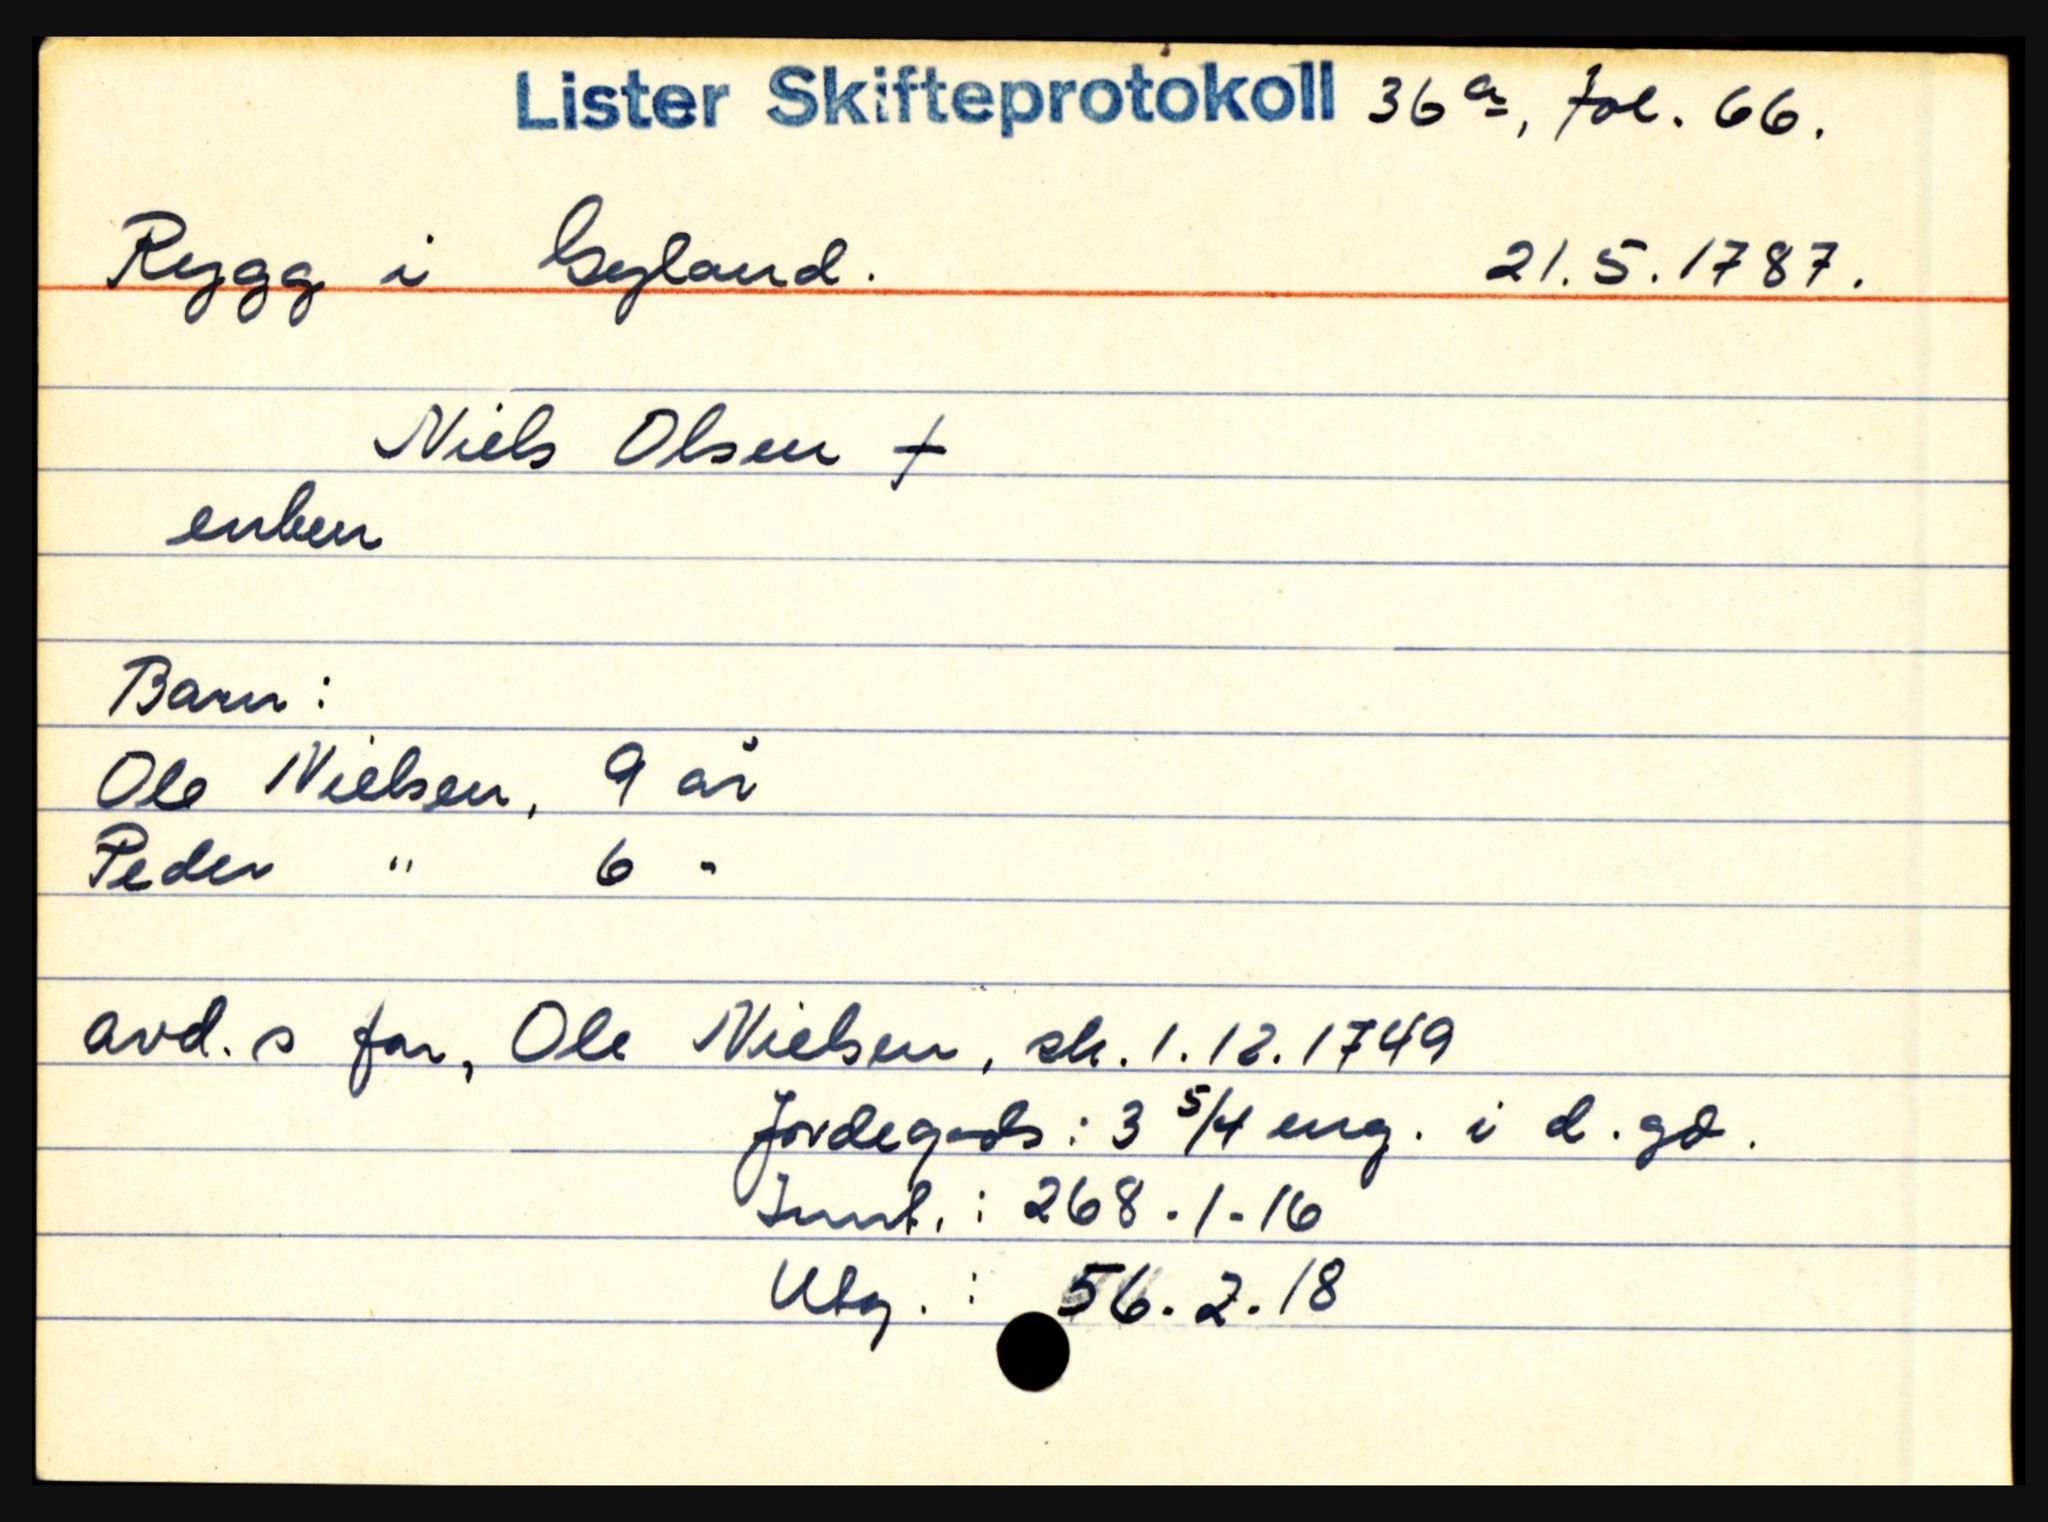 Lister Skifteprotokoll 36a, fol. 66.
Rygg i Gyland. 21.5.1787.
Niels Olsen †
enben
Barn:
Ole Nielsen, 9 år
Peder " 6 "
avd. s far, Ole Nielsen, sk. 1.12.1749
Jordegods: 3 5/4 eng. i d. gd.
Innt.: 268-1-16
Utg.: 56.2.18